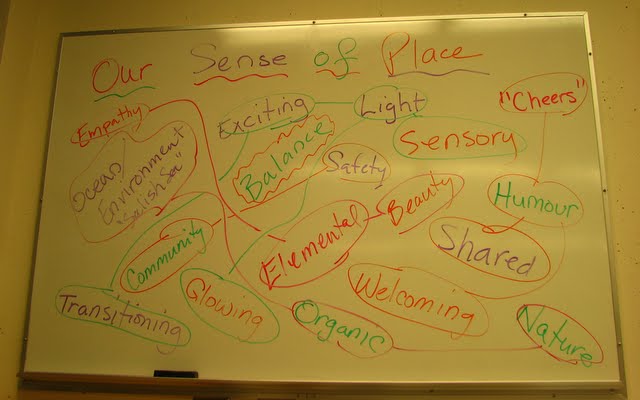 Our Sense of Place
Empathy
Exciting
Light
"Cheers"
Ocean/
Environment
"Salish Sea"
Balance
Sensory
Safety
Beauty
Humour
Community
Elemental
Shared
Transitioning
Glowing
Organic
Welcoming
Nature